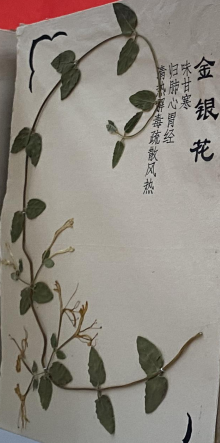 金银花
味甘寒
归肺心胃经
清热解毒疏散风热